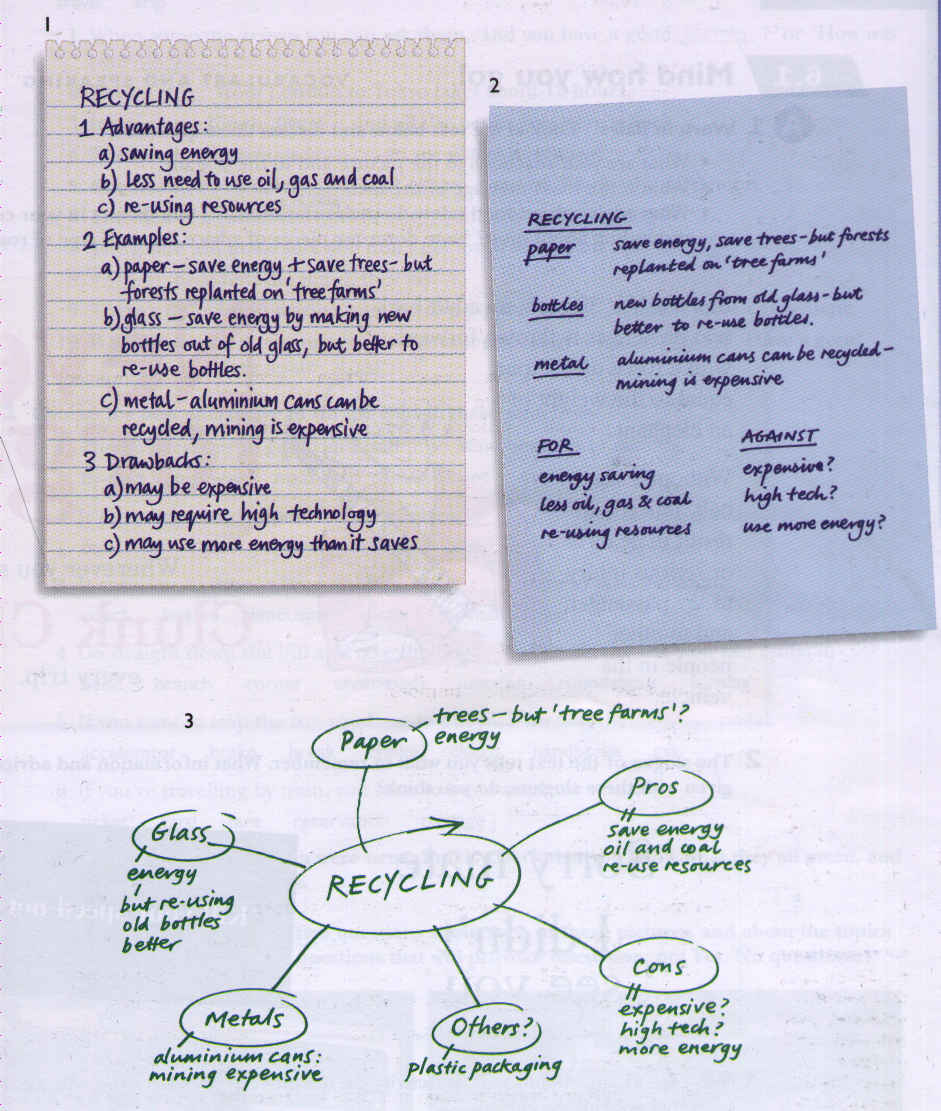 1
RECYCLING
1 Advantages:
a) saving energy
b) less need to use oil, gas and coal
c) re-using resources
2 Examples:
a) paper – save energy + save trees – but
forests replanted on 'tree farms'
b) glass – save energy by making new
bottles out of old glass, but better to
re-use bottles.
c) metal – aluminium cans can be
recycled, mining is expensive
3 Drawbacks:
a) may be expensive
b) may require high technology
c) may use more energy than it saves
2
RECYCLING
paper save energy, save trees – but forests
replanted on 'tree farms'
bottles new bottles from old glass – but
better to re-use bottles.
metal aluminium cans can be recycled –
mining is expensive
FOR AGAINST
energy saving expensive?
less oil, gas & coal high tech?
re-using resources use more energy?
3
Paper
trees – but 'tree farms'?
energy
Pros
save energy
oil and coal
re-use resources
Glass
energy
but re-using
old bottles
better
RECYCLING
Cons
expensive?
high tech?
more energy
Metals
aluminium cans:
mining expensive
Others?
plastic packaging